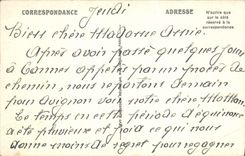 CORRESPONDANCE
ADRESSE
N'écrire que
sur le côté
réservé à la
correspondance
Jeudi
Bien chère Madame
Après avoir passé quelques jours
à Cannes appelés par un procès de
chemin, nous repartons demain
pour Avignon voir notre chère
Le temps en cette période d'équinoxe
a été pluvieux et froid ce qui nous
donne moins de regret pour regagner